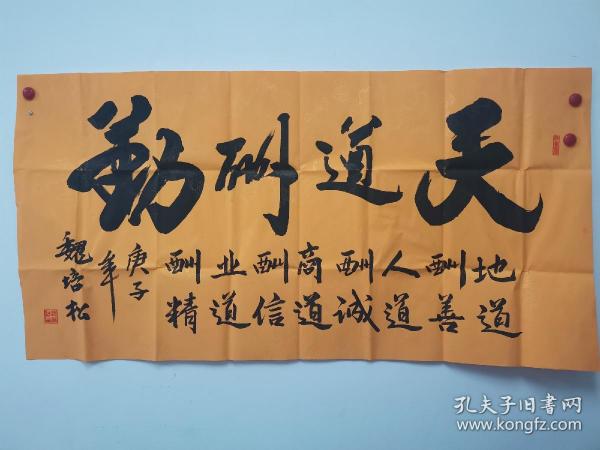 天道酬勤
地道
酬善
人道
酬诚
商道
酬信
业道
酬精
庚子
年
魏培松
孔夫子旧书网
www.kongfz.com